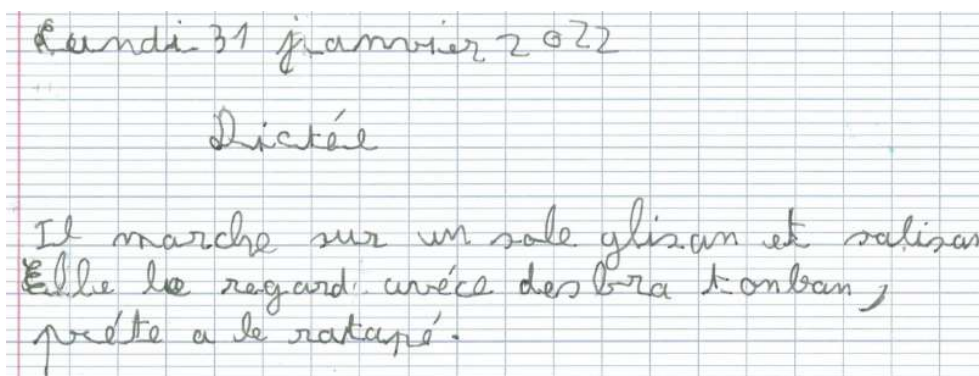 Lundi 31 janvier 2022
Dictée
Il marche sur un sole glisan et salisan
Elle le regard avéce des bra tonban,
préte a le ratapé.